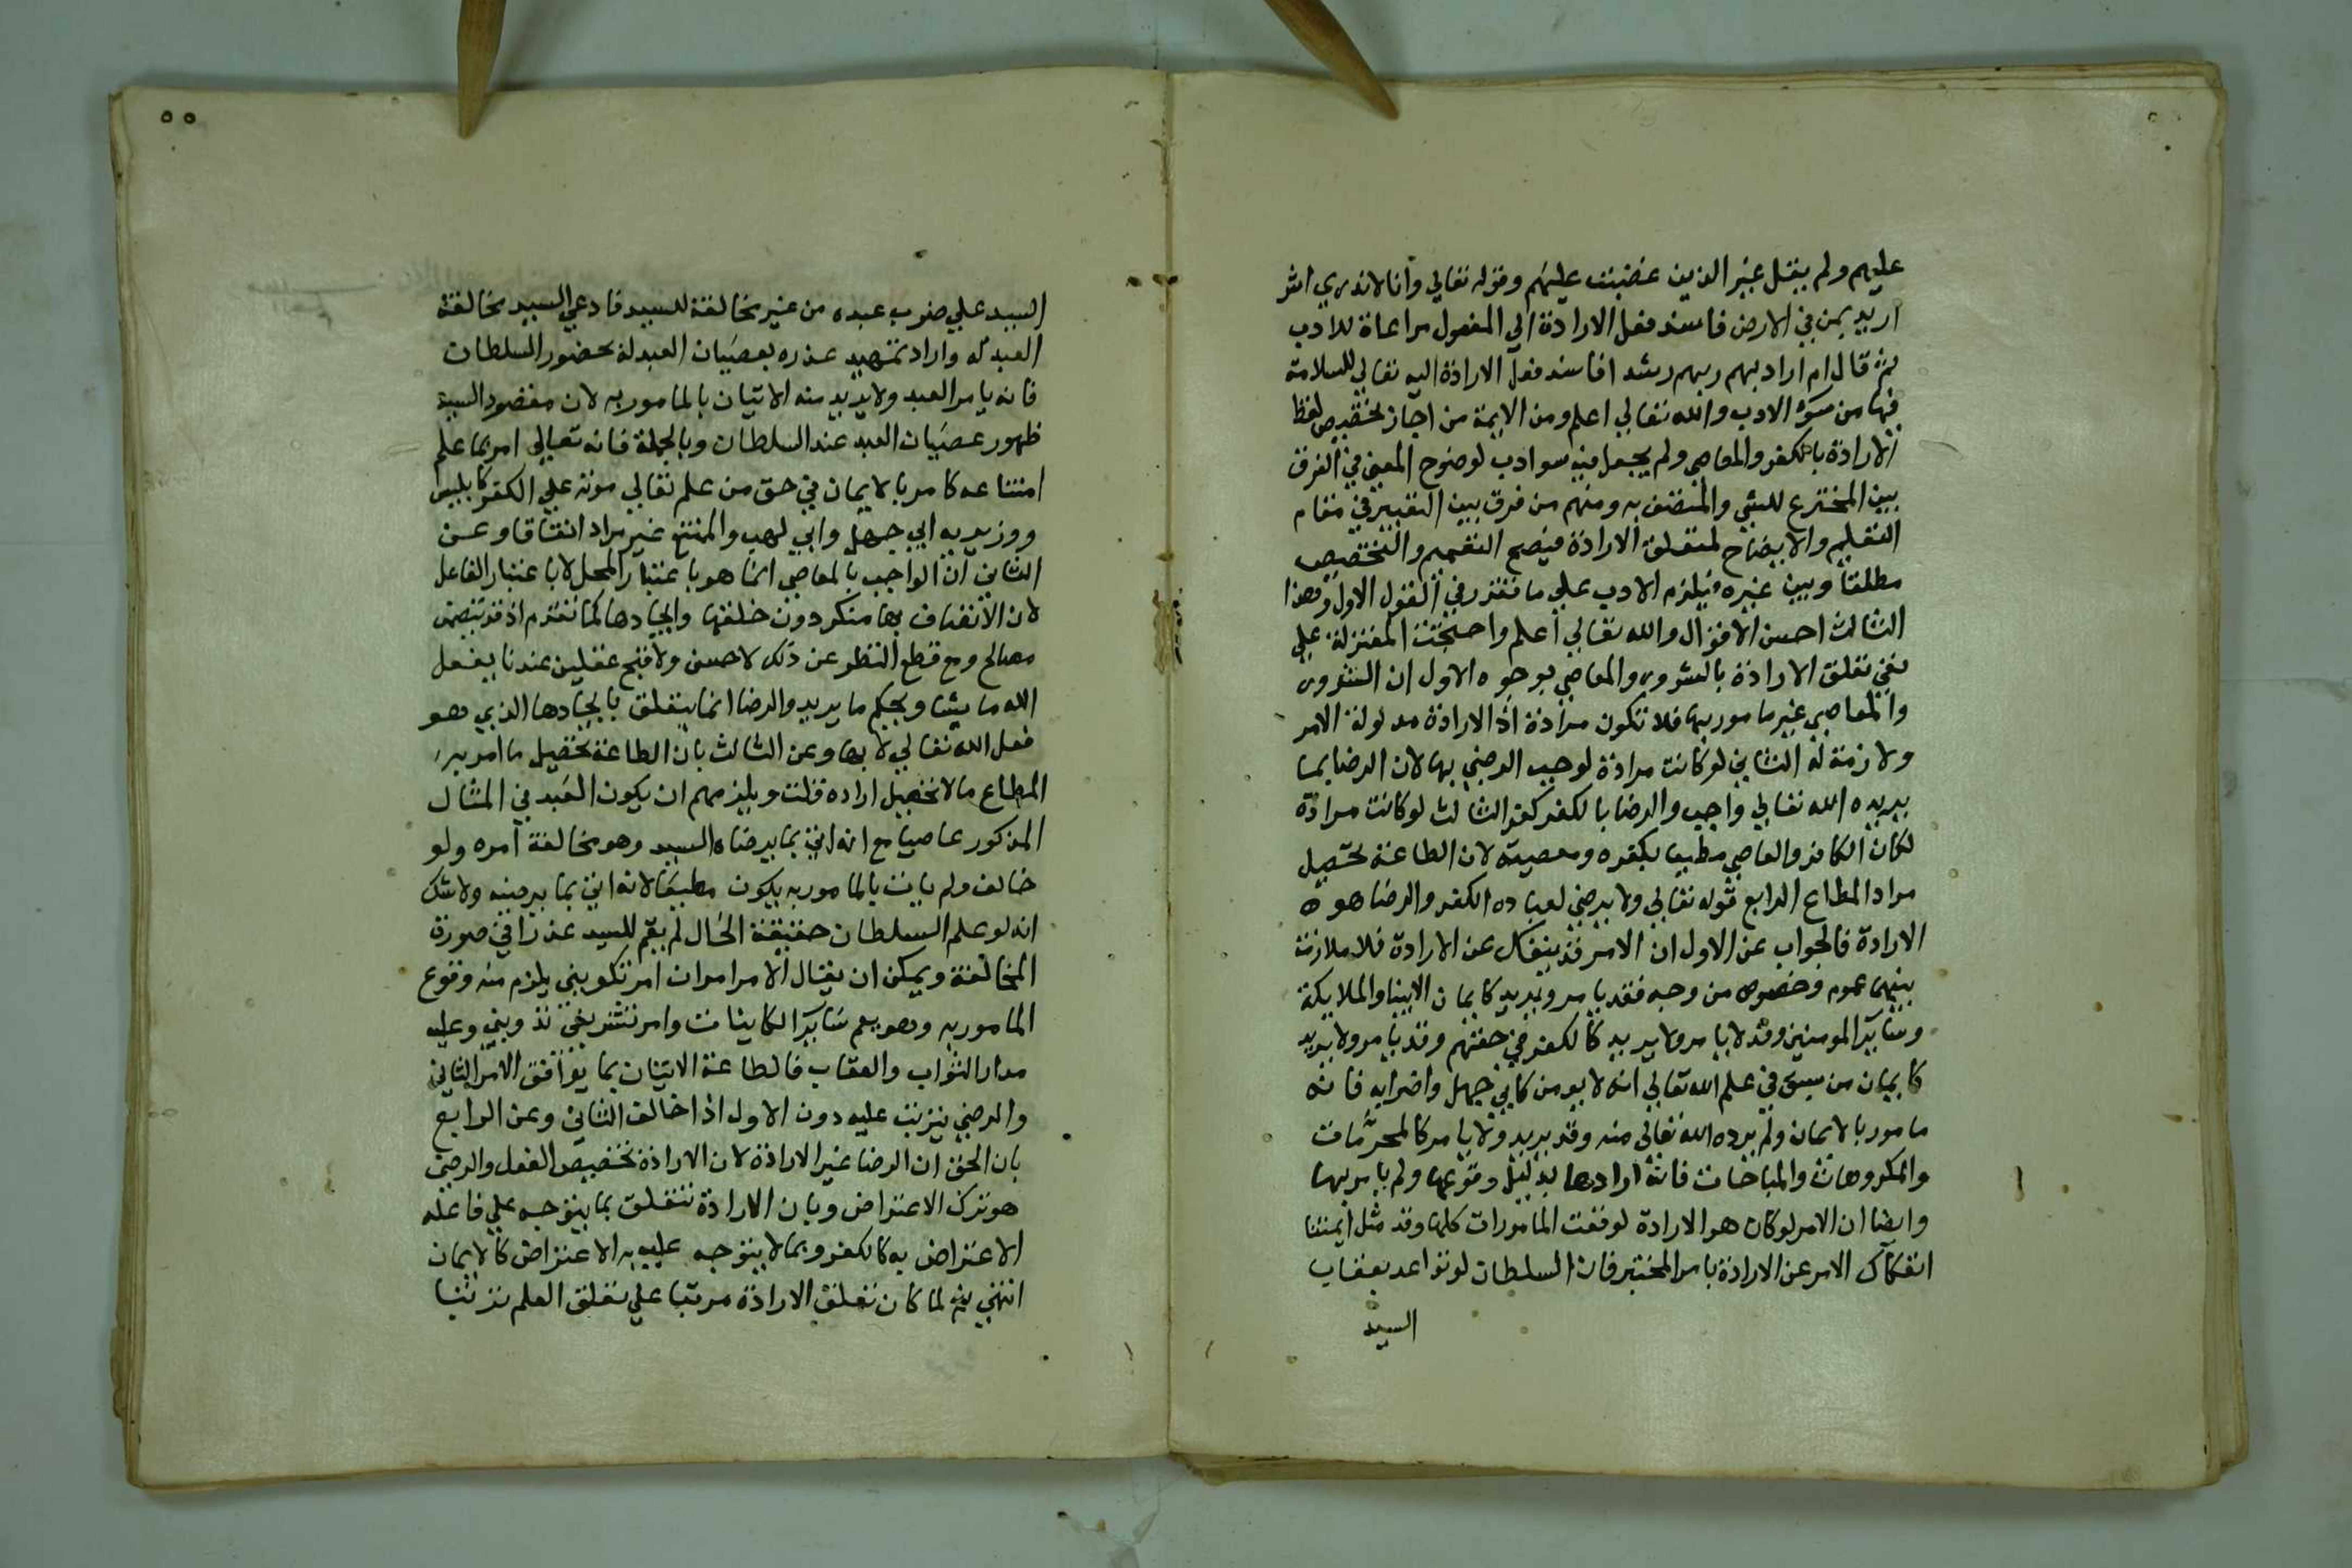 عليهم ولم يقل غير الذين غضبت عليهم وقوله تعالي وانا لاندري اشر
اريد بمن في الارض فاسند فعل الارادة الي المفعول مراعاة للادب
ثم قال ام اراد بهم ربهم رشدا فاسند فعل الارادة اليه تعالي للسلامة
فيها من سوء الادب والله تعالي اعلم ومن الايمة من اجاز تخصيص لفظ
الارادة بالكفر والمعاصي ولم يجعل فيه سوادب لوضوح المعني في الفرق
بين المخترع للشي والمتصف به ومنهم من فرق بين التعبير في مقام
التعليم والايضاح لمتعلق الارادة فيصح التعميم والتخصيص
مطلقا وبين غيره فيلزم الادب علي ما تقرر في القول الاول وهذا
الثالث احسن الاقوال والله تعالي اعلم واحتجت المعتزلة علي
نفي تعلق الارادة بالشرور والمعاصي بوجوه الاول ان الشرور
والمعاصي غير مامور بها فلا تكون مرادة اذ الارادة مدلولة الامر
ولازمة له الثاني لو كانت مرادة لوجب الرضي بها لان الرضا بما
يريده الله تعالي واجب والرضا بالكفر كفر الثالث لو كانت مرادة
لكان الكافر والعاصي مطيعا بكفره ومعصيته لان الطاعة تحصيل
مراد المطاع الرابع قوله تعالي ولا يرضي لعباده الكفر والرضا هو
الارادة فالجواب عن الاول ان الامر قد ينفك عن الارادة فلا ملازمة
بينهما عموم وخصوص من وجه فقد يامر ويريد كايمان الانبيا والملايكة
وساير المومنين وقد لا يامر ولا يريد كالكفر في حقهم وقد يامر ولا يريد
كايمان من سبق في علم الله تعالي انه لا يومن كابي جهل واضرابه فانه
مامور بالايمان ولم يرده الله تعالي منه وقد يريد ولا يامر كالمحرمات
والمكروهات والمباحات فانه ارادها بدليل وقوعها ولم يامر بها
وايضا ان الامر لو كان هو الارادة لوقعت المامورات كلها وقد مثل ايمتنا
انفكاك الامر عن الارادة بامر المختبر فان السلطان لو تواعد بعقاب
السيد
٥٥
السيد علي ضرب عبده من غير مخالفة للسيد فادعي السيد مخالفة
العبد له واراد تمهيد عذره بعصيان العبد له بحضور السلطان
فانه يامر العبد ولا يريد منه الاتيان بالمامور به لان مقصود السيد
ظهور عصيان العبد عند السلطان وبالجملة فانه تعالي امر بما علم
امتناعه كامر بالايمان في حق من علم تعالي موته علي الكفر كابليس
ووزيريه ابي جهل وابي لهب والممتنع غير مراد اتفاقا وعن
الثاني ان الواجب بالمعاصي انما هو باعتبار المحل لا باعتبار الفاعل
لان الاتصاف بها منكر دون خلقها وايجادها كما تقدم اذ قد تتضمن
مصالح ومع قطع النظر عن ذلك لا حسن ولا قبح عقلين عندنا يفعل
الله ما يشا ويحكم ما يريد والرضا انما يتعلق بايجادها الذي هو
فعل الله تعالي لا بها وعن الثالث بان الطاعة تحصيل ما امر به
المطاع ما لا تحصيل اراده قلت ويلزمهم ان يكون العبد في المثال
المذكور عاصيا مع انه اتي بما يرضاه السيد وهو مخالفة امره ولو
خالف ولم يات بالمامور به يكون مطيعا لانه اتي بما يرضيه ولا شك
انه لو علم السلطان حقيقة الحال لم يقم للسيد عذرا في صورة
المخالفة ويمكن ان يقال الامر امران امر تكويني يلزم منه وقوع
المامور به وهو يعم ساير الكاينات وامر تشريعي تدويني وعليه
مدار الثواب والعقاب فالطاعة الاتيان بما يوافق الامر الثاني
والرضي يترتب عليه دون الاول اذا خالف الثاني وعن الرابع
بان الحق ان الرضا غير الارادة لان الارادة تخصيص الفعل والرضي
هو ترك الاعتراض وبان الارادة تتعلق بما يتوجه علي فاعله
الاعتراض به كالكفر وبما لا يتوجه عليه به الاعتراض كالايمان
انتهي ثم لما كان تعلق الارادة مرتبا علي تعلق العلم ترتبا